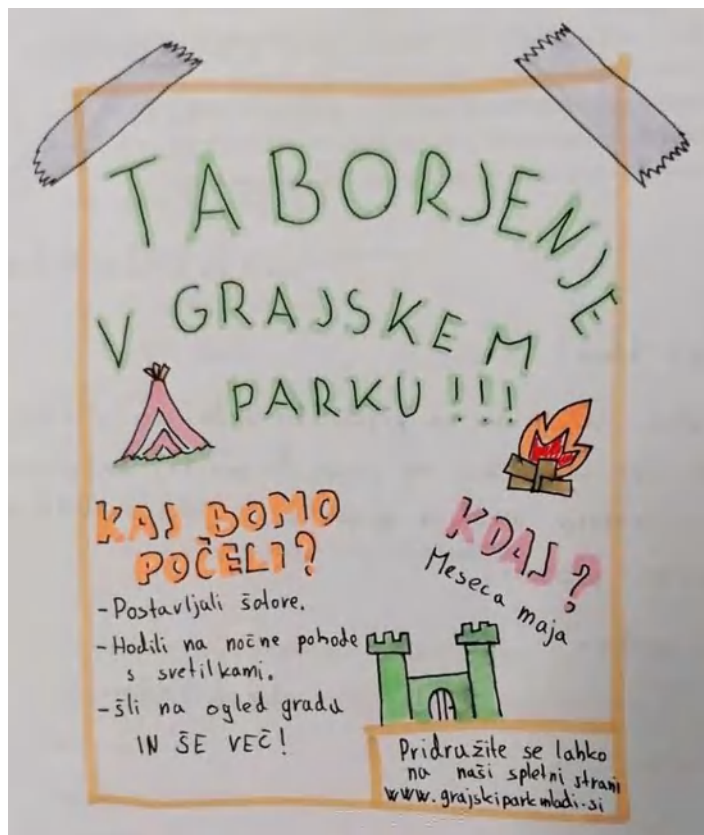 TABORJENJE
V GRAJSKEM
PARKU!!!
KAJ BOMO
POČELI?
- Postavljali šolore.
- Hodili na nočne pohode
s svetilkami.
- šli na ogled gradu
IN ŠE VEČ!
KDAJ?
Meseca maja
Pridružite se lahko
na naši spletni strani
www.grajskiparkmladi.si